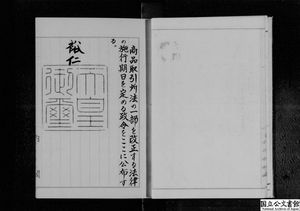 商品取引所法の一部を改正する法律
の施行期日を定める政令をここに公布す
る。
裕仁
天皇
御璽
国立公文書館
National Archives of Japan